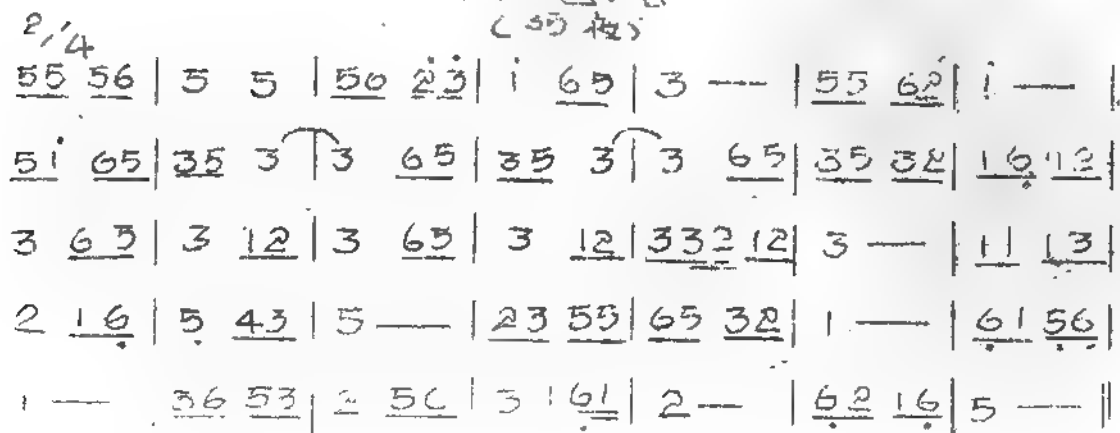 2/4
(35 弦)
55 56 | 5 5 | 56 2̇3̇ | i̇ 65 | 3 — | 55 62̇ | i̇ — |
51̇ 65 | 35 3 | 3 65 | 35 3 | 3 65 | 35 32 | 16̣ 12 |
3 65 | 3 12 | 3 65 | 3 12 | 332 12 | 3 — | 11 13 |
2 16̣ | 5̣ 43 | 5 — | 23 55 | 65 32 | 1 — | 6̣1 5̣6̣ |
1 — 36 53 | 2 56 | 3 1 6̣1 | 2 — | 6̣2 16̣ | 5 — ‖